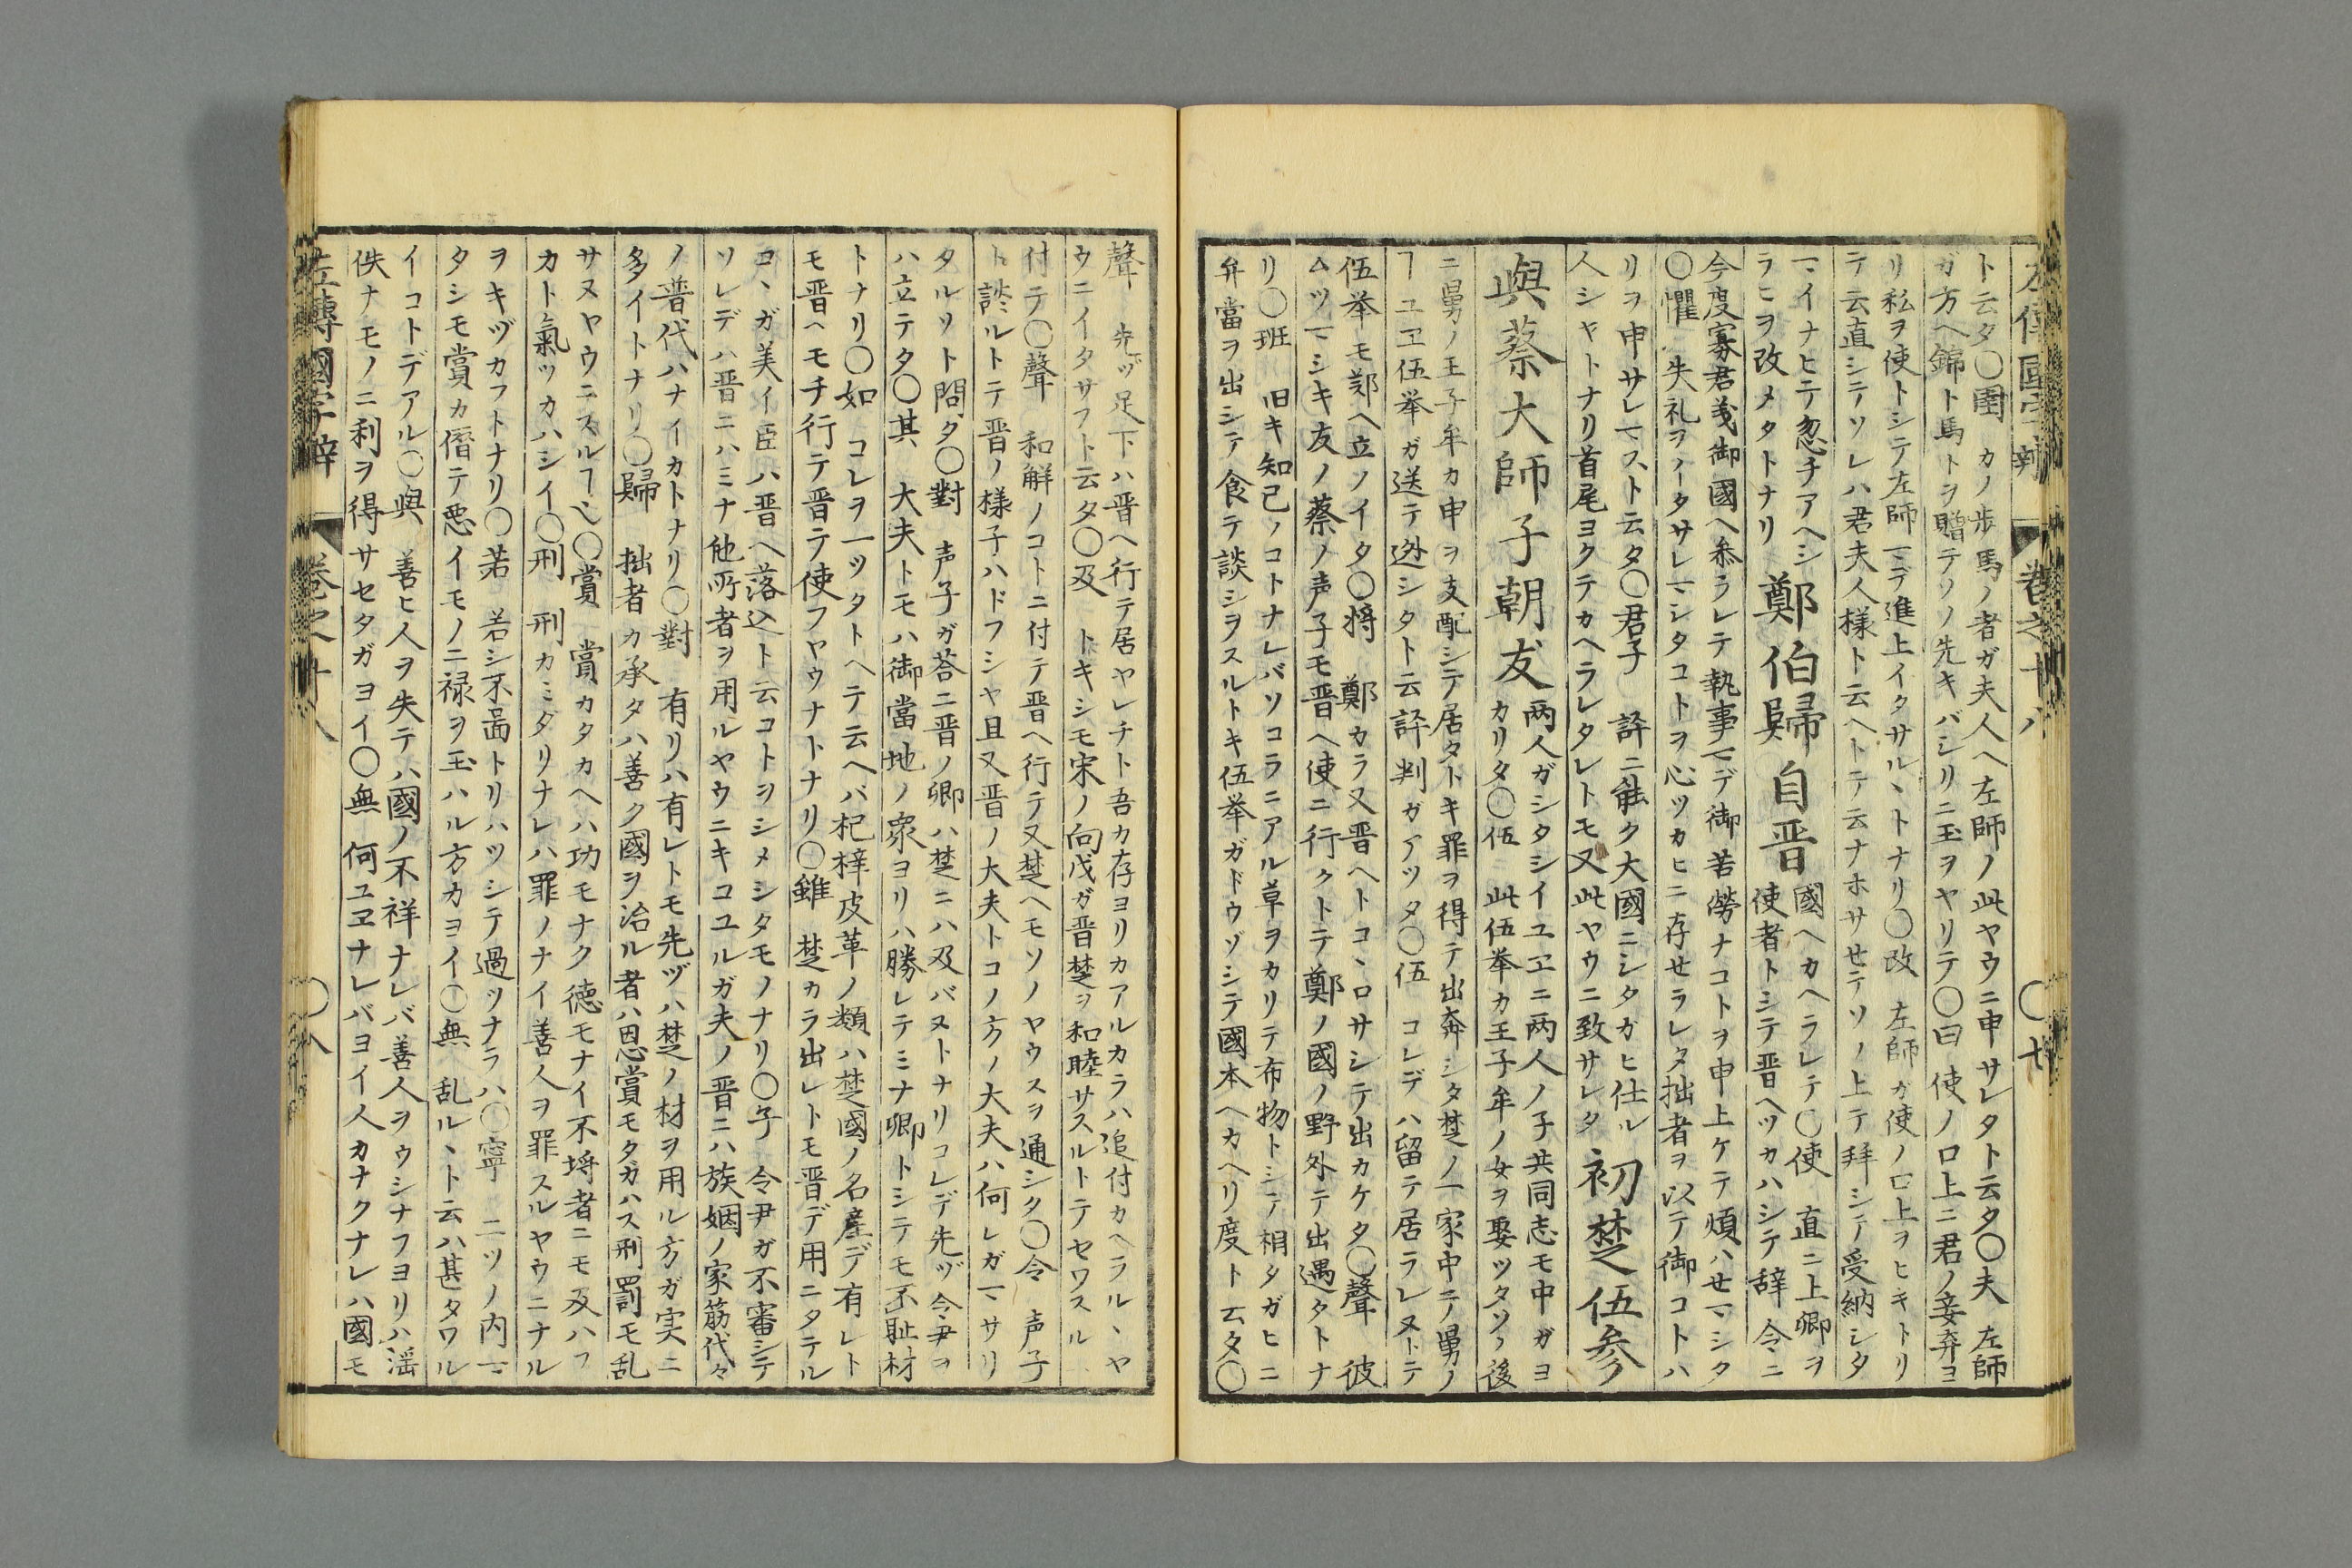 左傳國字辨 卷之十八 〇七
ト云タ〇圉 カノ歩馬ノ者ガ夫人ヘ左師ノ此ヤウニ申サレタト云タ〇夫 左師
ガ方ヘ錦ト馬トヲ贈テソノ先キバシリニ玉ヲヤリテ〇曰 使ノ口上ニ君ノ妾弃ヨ
リ私ヲ使トシテ左師ヘマデ進上イタサルヽトナリ〇改 左師ガ使ノ口上ヲヒキトリ
テ云直シテソレハ君夫人様ト云ヘトテ云ナホサセテソノ上テ拜シテ受納シタ
マイナヒテ忽チアヘシラヒヲ改メタトナリ
鄭伯歸自晋
國ヘカヘラレテ〇使 直ニ上卿ヲ
使者トシテ晋ヘツカハシテ辞令ニ
今度寡君義御國ヘ参ラレテ執事マデ御苦勞ナコトヲ申上ケテ煩ハセマシタ
〇懼 失礼ヲイタサレマシタコトヲ心ツカヒニ存セラレタ拙者ヲ以テ御コトハ
リヲ申サレマスト云タ〇君子 評ニ能ク大國ニシタガヒ仕ル
人シヤトナリ首尾ヨクテカヘラレタレトモ又此ヤウニ致サレタ
初楚伍参
與蔡大師子朝友
两人ガシタシイユヱニ两人ノ子共同志モ中ガヨ
カリタ〇伍 此伍挙カ王子牟ノ女ヲ娶ツタソノ後
ニ舅ノ王子牟カ申ヲ支配シテ居タトキ罪ヲ得テ出奔シタ楚ノ一家中ニノ舅ノ
ヿユヱ伍挙ガ送テ迯シタト云評判ガアツタ〇伍 コレデハ留テ居ラレヌトテ
伍挙モ鄭ヘ立ノイタ〇将 鄭カラ又晋ヘトコヽロサシテ出カケタ〇聲 彼
ムツマシキ友ノ蔡ノ声子モ晋ヘ使ニ行クトテ鄭ノ國ノ野外テ出遇タトナ
リ〇班 旧キ知己ノコトナレバソコラニアル草ヲカリテ布物トシテ相タガヒニ
弁當ヲ出シテ食テ談シヲスルトキ伍挙ガドウゾシテ國本ヘカヘリ度ト云タ〇
聲 先ヅ足下ハ晋ヘ行テ居ヤレチト吾カ存ヨリカアルカラハ追付カヘラルヽヤ
ウニイタサフト云タ〇及 トキシモ宋ノ向戌ガ晋楚ヲ和睦サスルトテセワスル
付テ〇聲 和解ノコトニ付テ晋ヘ行テ又楚ヘモソノヤウスヲ通シタ〇令 声子
ト談ルトテ晋ノ様子ハドフシヤ且又晋ノ大夫トコノ方ノ大夫ハ何レガマサリ
タルソト問タ〇對 声子ガ荅ニ晋ノ卿ハ楚ニハ及バヌトナリコレデ先ヅ令尹ヲ
ハ立テタ〇其 大夫トモハ御當地ノ衆ヨリハ勝レテミナ卿トシテモ不耻材
トナリ〇如 コレヲ一ツタトヘテ云ヘバ杞梓皮革ノ類ハ楚國ノ名産デ有レト
モ晋ヘモチ行テ晋テ使フヤウナトナリ〇雖 楚カラ出レトモ晋デ用ニタテル
コヽガ美イ臣ハ晋ヘ落込ト云コトヲシメシタモノナリ〇子 令尹ガ不審シテ
ソレデハ晋ニハミナ他所者ヲ用ルヤウニキコユルガ夫ノ晋ニハ族姻ノ家筋代々
ノ晋代ハナイカトナリ〇對 有リハ有レトモ先ヅハ楚ノ材ヲ用ル方ガ実ニ
多イトナリ〇歸 拙者カ承タハ善ク國ヲ治ル者ハ恩賞モタガハス刑罰モ乱
サヌヤウニスルヿ也〇賞 賞カタカヘハ功モナク德モナイ不埒者ニモ及ハフ
カト氣ツカハシイ〇刑 刑カミダリナレハ罪ノナイ善人ヲ罪スルヤウニナル
ヲキヅカフトナリ〇若 若シ不啚トリハツシテ過ツナラハ〇寧 二ツノ内マ
タシモ賞カ僭テ悪イモノニ禄ヲ玉ハル方カヨイ〇無 乱ルヽト云ハ甚タワル
イコトデアル〇與 善ヒ人ヲ失テハ國ノ不祥ナレバ善人ヲウシナフヨリハ滛
佚ナモノニ利ヲ得サセタガヨイ〇無 何ユヱナレバヨイ人カナクナレハ國モ
左傳國字辨 卷之十八 〇八